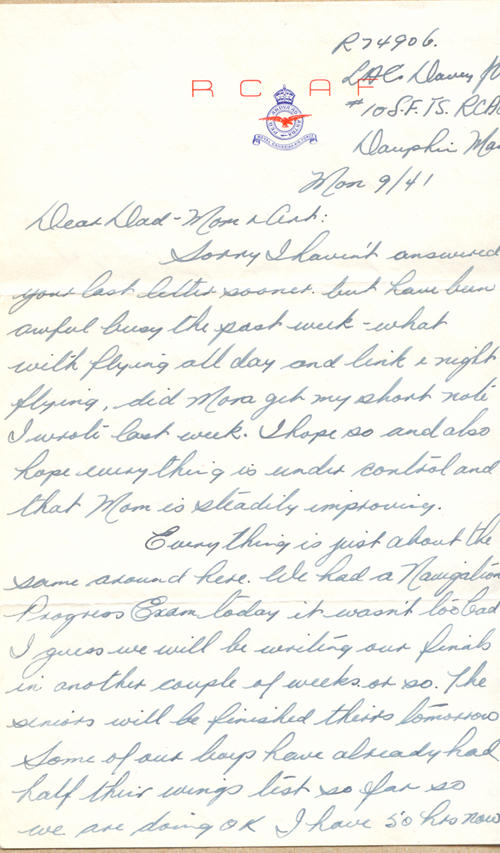 R74906.
LAC Davey
R C A F
#10 S.F.TS. RCAF
Dauphin Man
Mon 9/41
Dear Dad - Mom & Art:
Sorry I haven't answered
your last letter sooner. but have been
awful busy the past week - what
with flying all day and link & night
flying, did Mora get my short note
I wrote last week. I hope so and also
hope everything is under control and
that Mom is steadily improving.
Everything is just about the
same around here. We had a Navigation
Progress Exam today it wasn't too bad
I guess we will be writing our finals
in another couple of weeks or so. The
seniors will be finished theirs tomorrow
Some of our boys have already had
half their wings test so far so
we are doing OK I have 50 hrs now